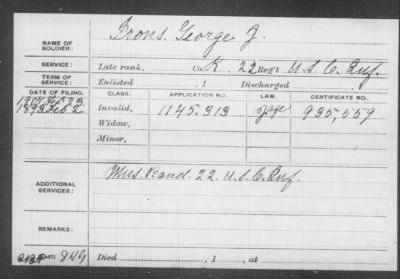 NAME OF SOLDIER: Irons, George J.
SERVICE: Late rank, Co. K, 22 Reg't U.S.C. Inf.
TERM OF SERVICE: Enlisted , 1 Discharged
DATE OF FILING. CLASS. APPLICATION NO. LAW. CERTIFICATE NO.
1907 Feb 23
1893 Feb 2 Invalid, 1145,313 935,559
Widow,
Minor,
ADDITIONAL SERVICES: Mus. &and. 22. U.S.C. Inf.
REMARKS:
Died , 1 , at